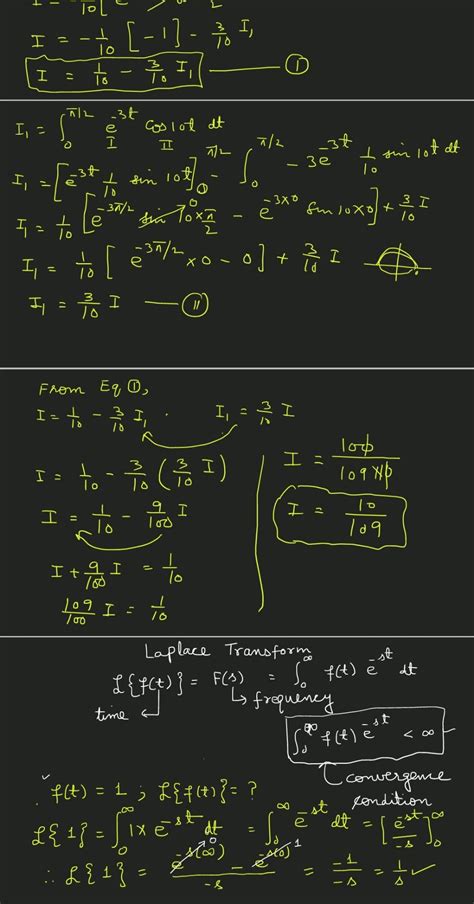 I = -1/10 [-1] - 3/10 I₁
I = 1/10 - 3/10 I₁ —— ①
I₁ = ∫₀^{π/2} e^{-3t} cos10t dt
I II
I₁ = [e^{-3t} 1/10 sin 10t]₀^{π/2} - ∫₀^{π/2} -3e^{-3t} 1/10 sin 10t dt
I₁ = 1/10 [e^{-3π/2} sin 10×π/2 - e^{-3×0} sin 10×0] + 3/10 I
0
I₁ = 1/10 [e^{-3π/2} × 0 - 0] + 3/10 I
I₁ = 3/10 I —— ⑪
From Eq ①,
I = 1/10 - 3/10 I₁ . I₁ = 3/10 I
I = 1/10 - 3/10 (3/10 I)
I = 1/10 - 9/100 I
I + 9/100 I = 1/10
109/100 I = 1/10
I = 100/109×10
I = 10/109
Laplace Transform
ℒ{f(t)} = F(s) = ∫₀^∞ f(t) e^{-st} dt
time frequency
∫₀^∞ f(t) e^{-st} < ∞
convergence
condition
✓ f(t) = 1 ; ℒ{f(t)} = ?
ℒ{1} = ∫₀^∞ 1× e^{-st} dt = ∫₀^∞ e^{-st} dt = [e^{-st}/-s]₀^∞
∴ ℒ{1} = (e^{-s(∞)} 0 - e^{-s(0)} 1)/-s = -1/-s = 1/s ✓